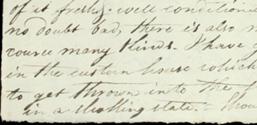 of it pretty well condition
no doubt bad, there is also
course many kinds. I have
in the custom house which
to get thrown into the
in a state.